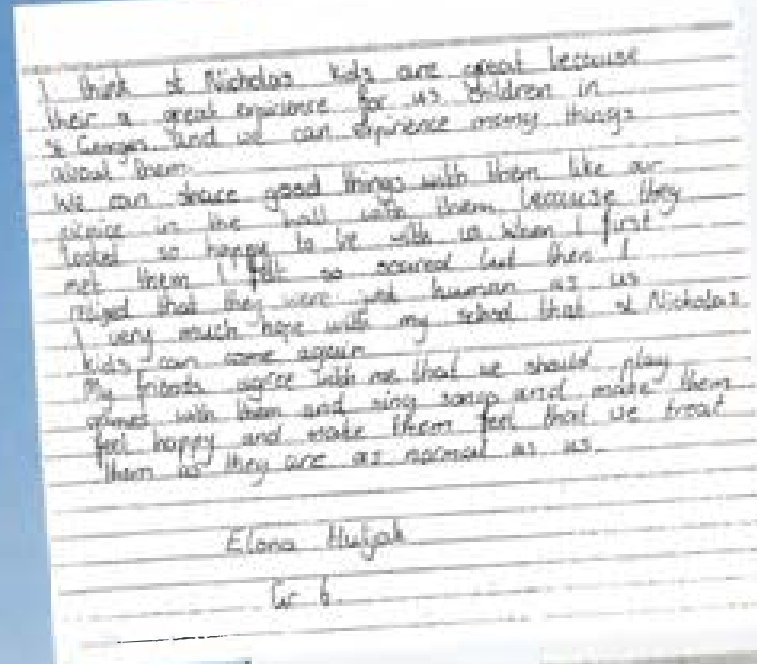 I think st Nicholas kids are great because
their a great expirience for us children in
st Georges and we can expirience many things
about them.
We can share good things with them like our
in the hall with them because they
looked so happy to be with us when I first
met them I felt so scared but then I
that they were just human as us
I very much hope with my school that st Nicholas
kids can come again
My friends agree with me that we should play
games with them and sing songs and make them
feel happy and make them feel that we treat
them as they are as normal as us.
Elona
Gr 6.